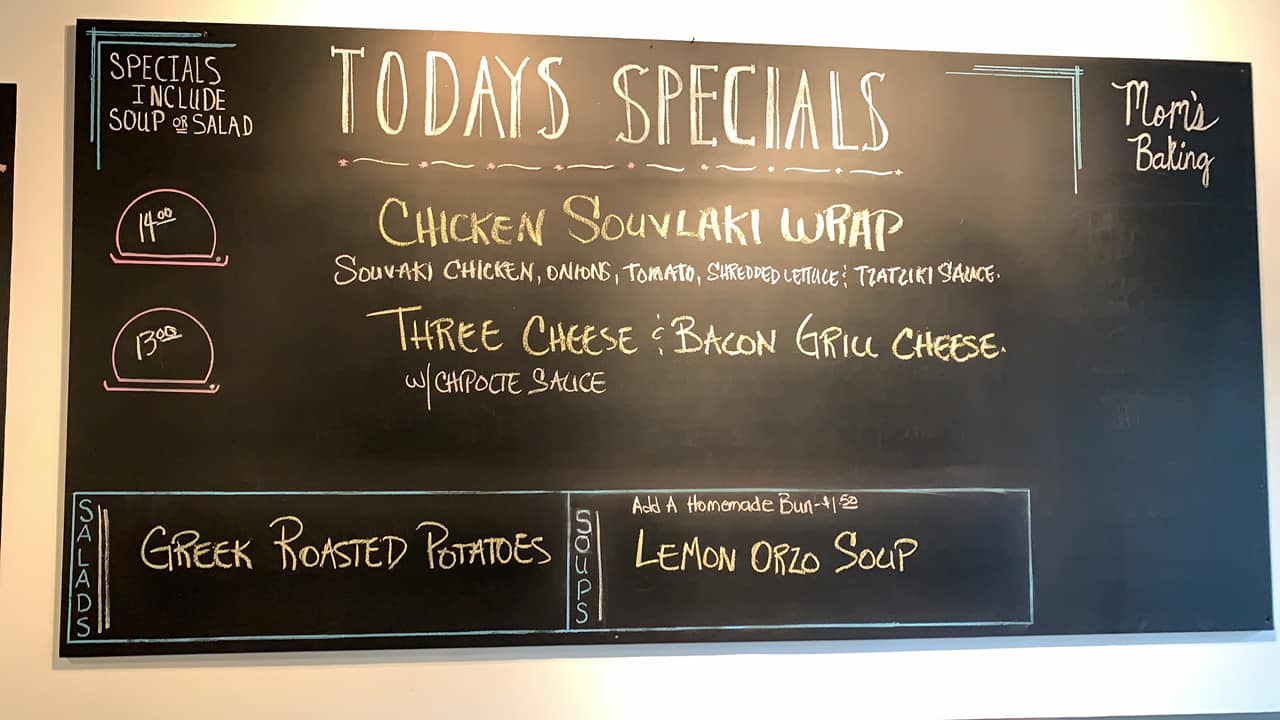 SPECIALS
INCLUDE
SOUP OR SALAD
TODAYS SPECIALS
Mom's
Baking
14.00
CHICKEN SOUVLAKI WRAP
SOUVAKI CHICKEN, ONIONS, TOMATO, SHREDDED LETTUCE & TZATZIKI SAUCE.
13.00
THREE CHEESE & BACON GRILL CHEESE.
W/ CHIPOLTE SAUCE
SALADS
GREEK ROASTED POTATOES
SOUPS
Add A Homemade Bun-$1.50
LEMON ORZO SOUP